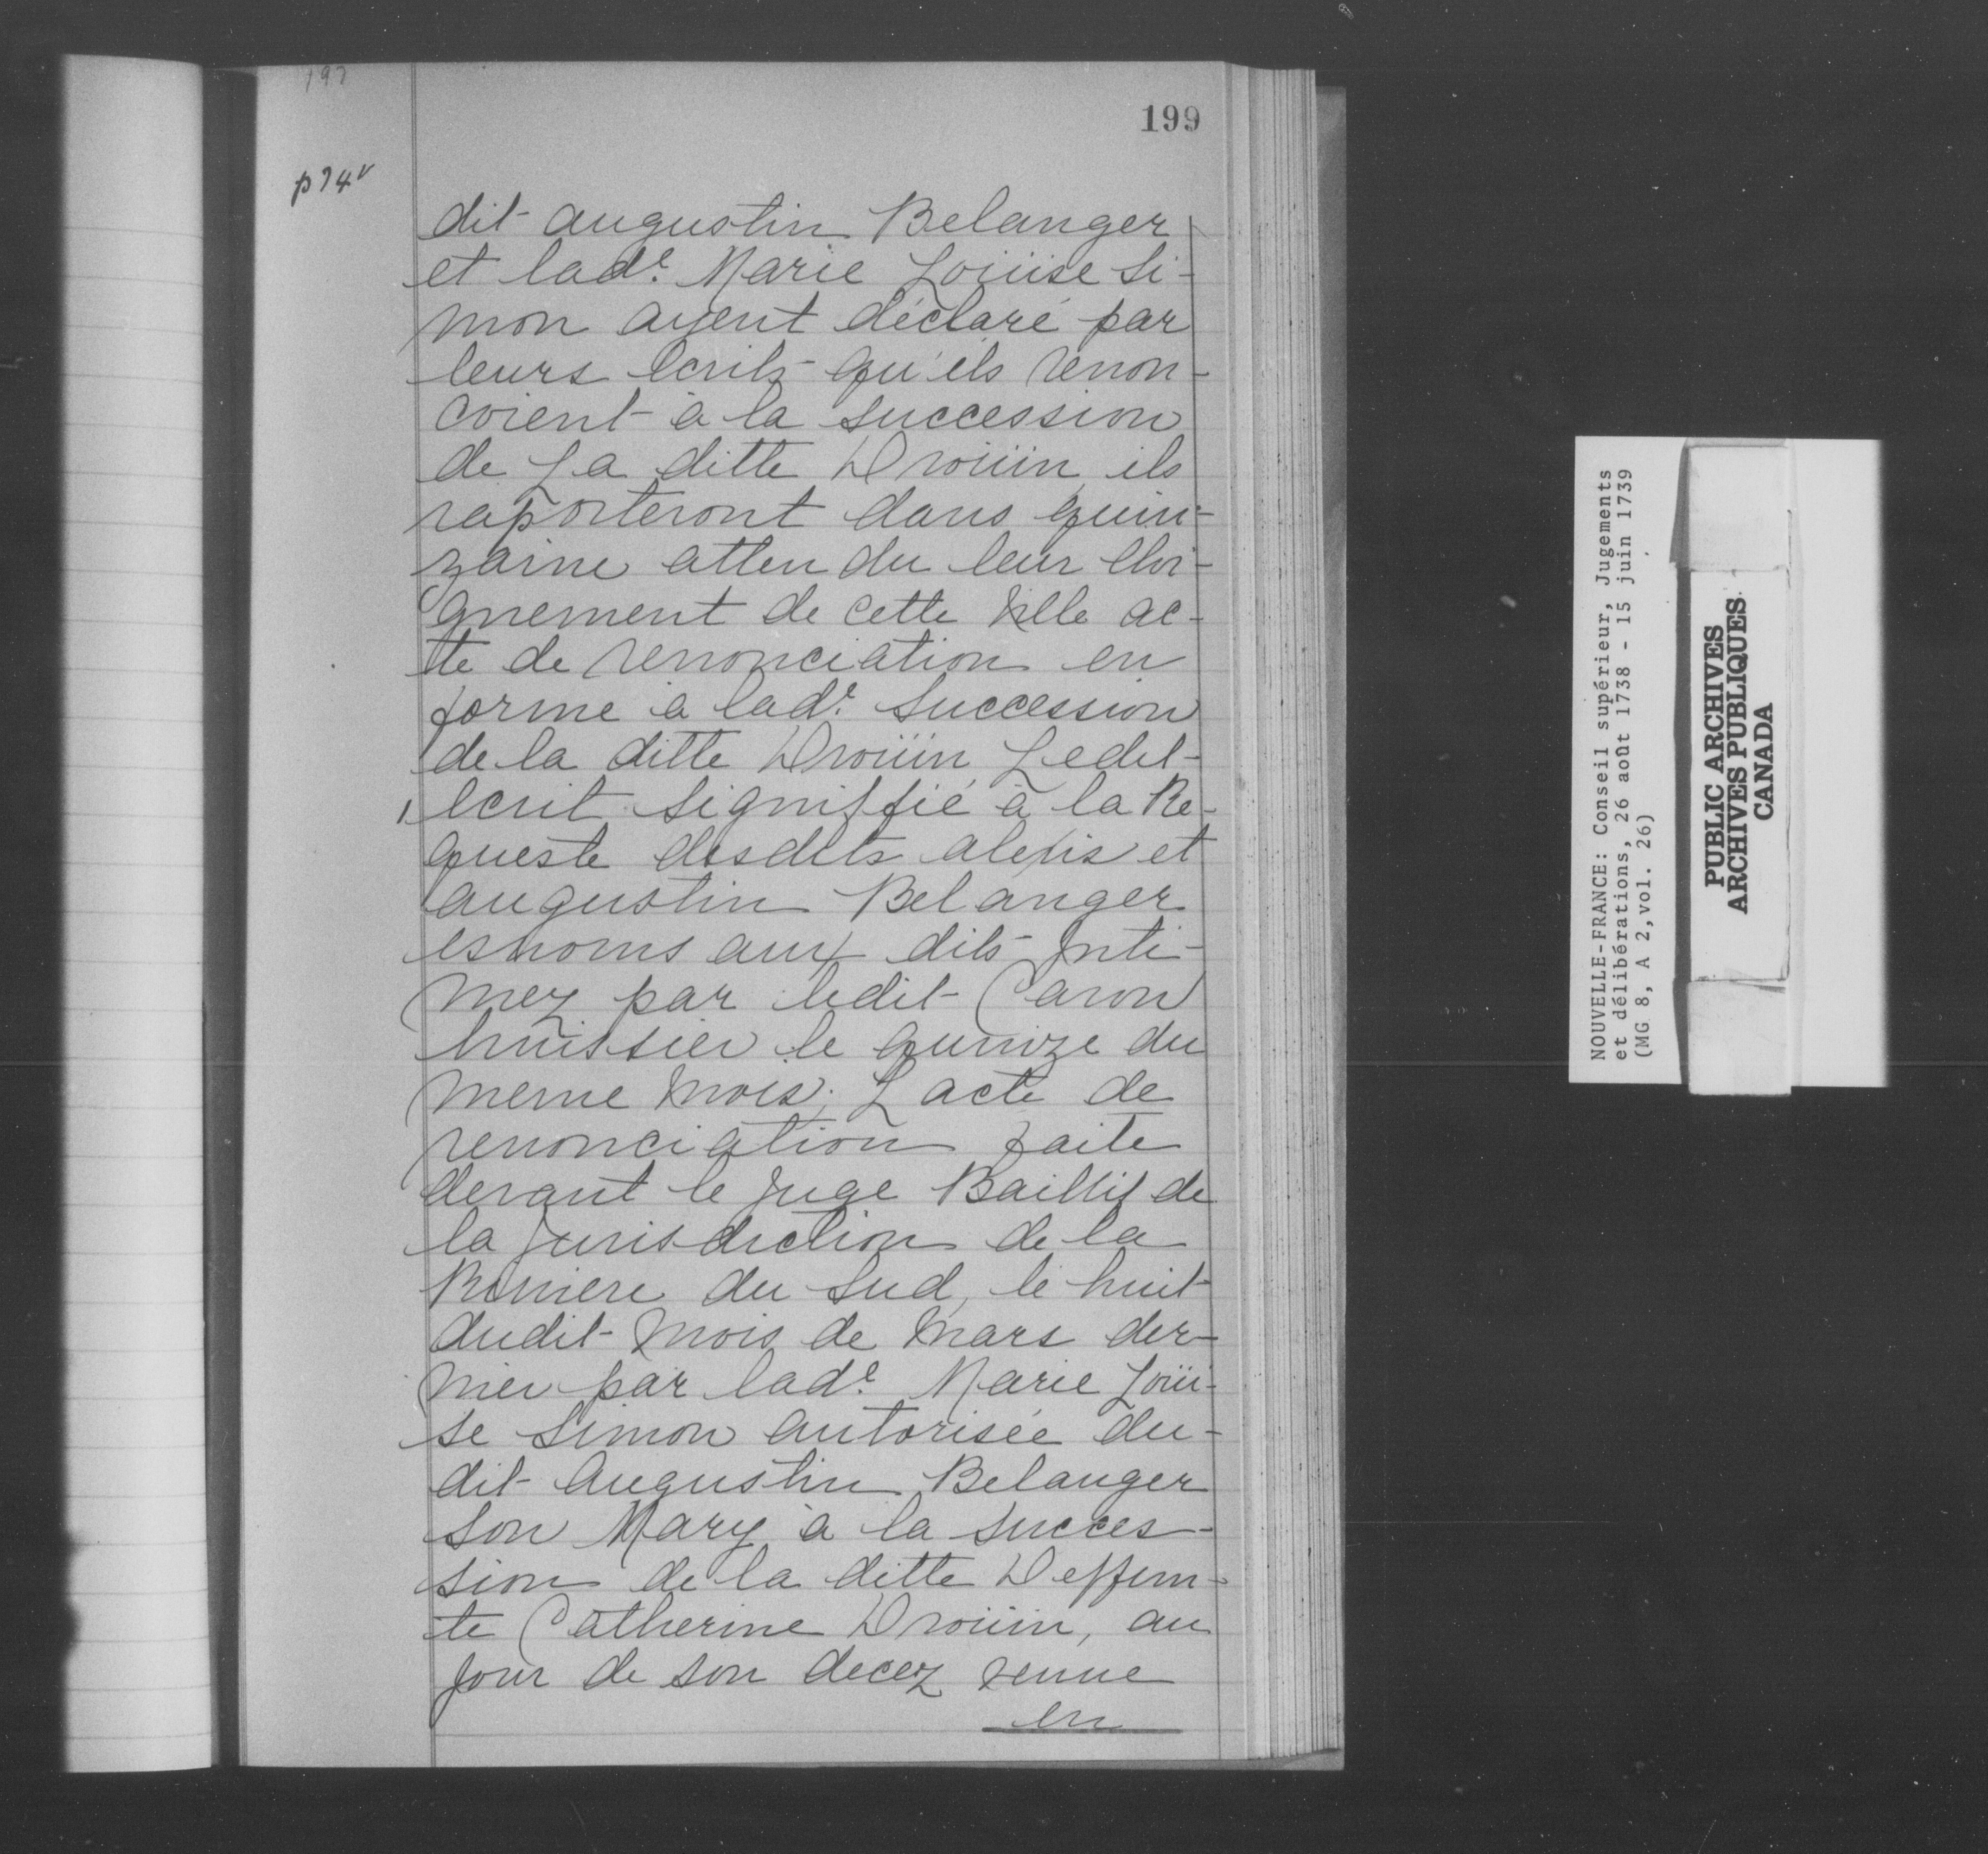 197
199
p74v
dit augustin Belanger
et lad.e Marie Loüise Si-
mon ayent déclaré par
leurs ecrits qu'ils renon-
coient à la succession
de La ditte Droüin, ils
raporteront dans quin-
zaine attendu leur eloi-
gnement de cette ville ac-
te de renonciation en
forme à lad.e succession
de la ditte Droüin, Ledit
ecrit signiffié à la Re-
queste desdits alexis et
augustin Belanger
esnoms aux dits Inti-
mez par ledit Caron
huissier le quinze du
meme mois; L'acte de
renonciation faite
devant le Juge Baillif de
la Jurisdiction de la
Riviere du Sud, le huit
dudit mois de mars der-
nier par lad.e Marie Loüi-
se Simon autorisée du-
dit Augustin Belanger
son Mary à la succes-
sion de la ditte Deffun-
te Catherine Droüin, au
jour de son decez
en
NOUVELLE-FRANCE: Conseil supérieur, Jugements
et délibérations, 26 août 1738 - 15 juin 1739
(MG 8, A 2, vol. 26)
PUBLIC ARCHIVES
ARCHIVES PUBLIQUES
CANADA